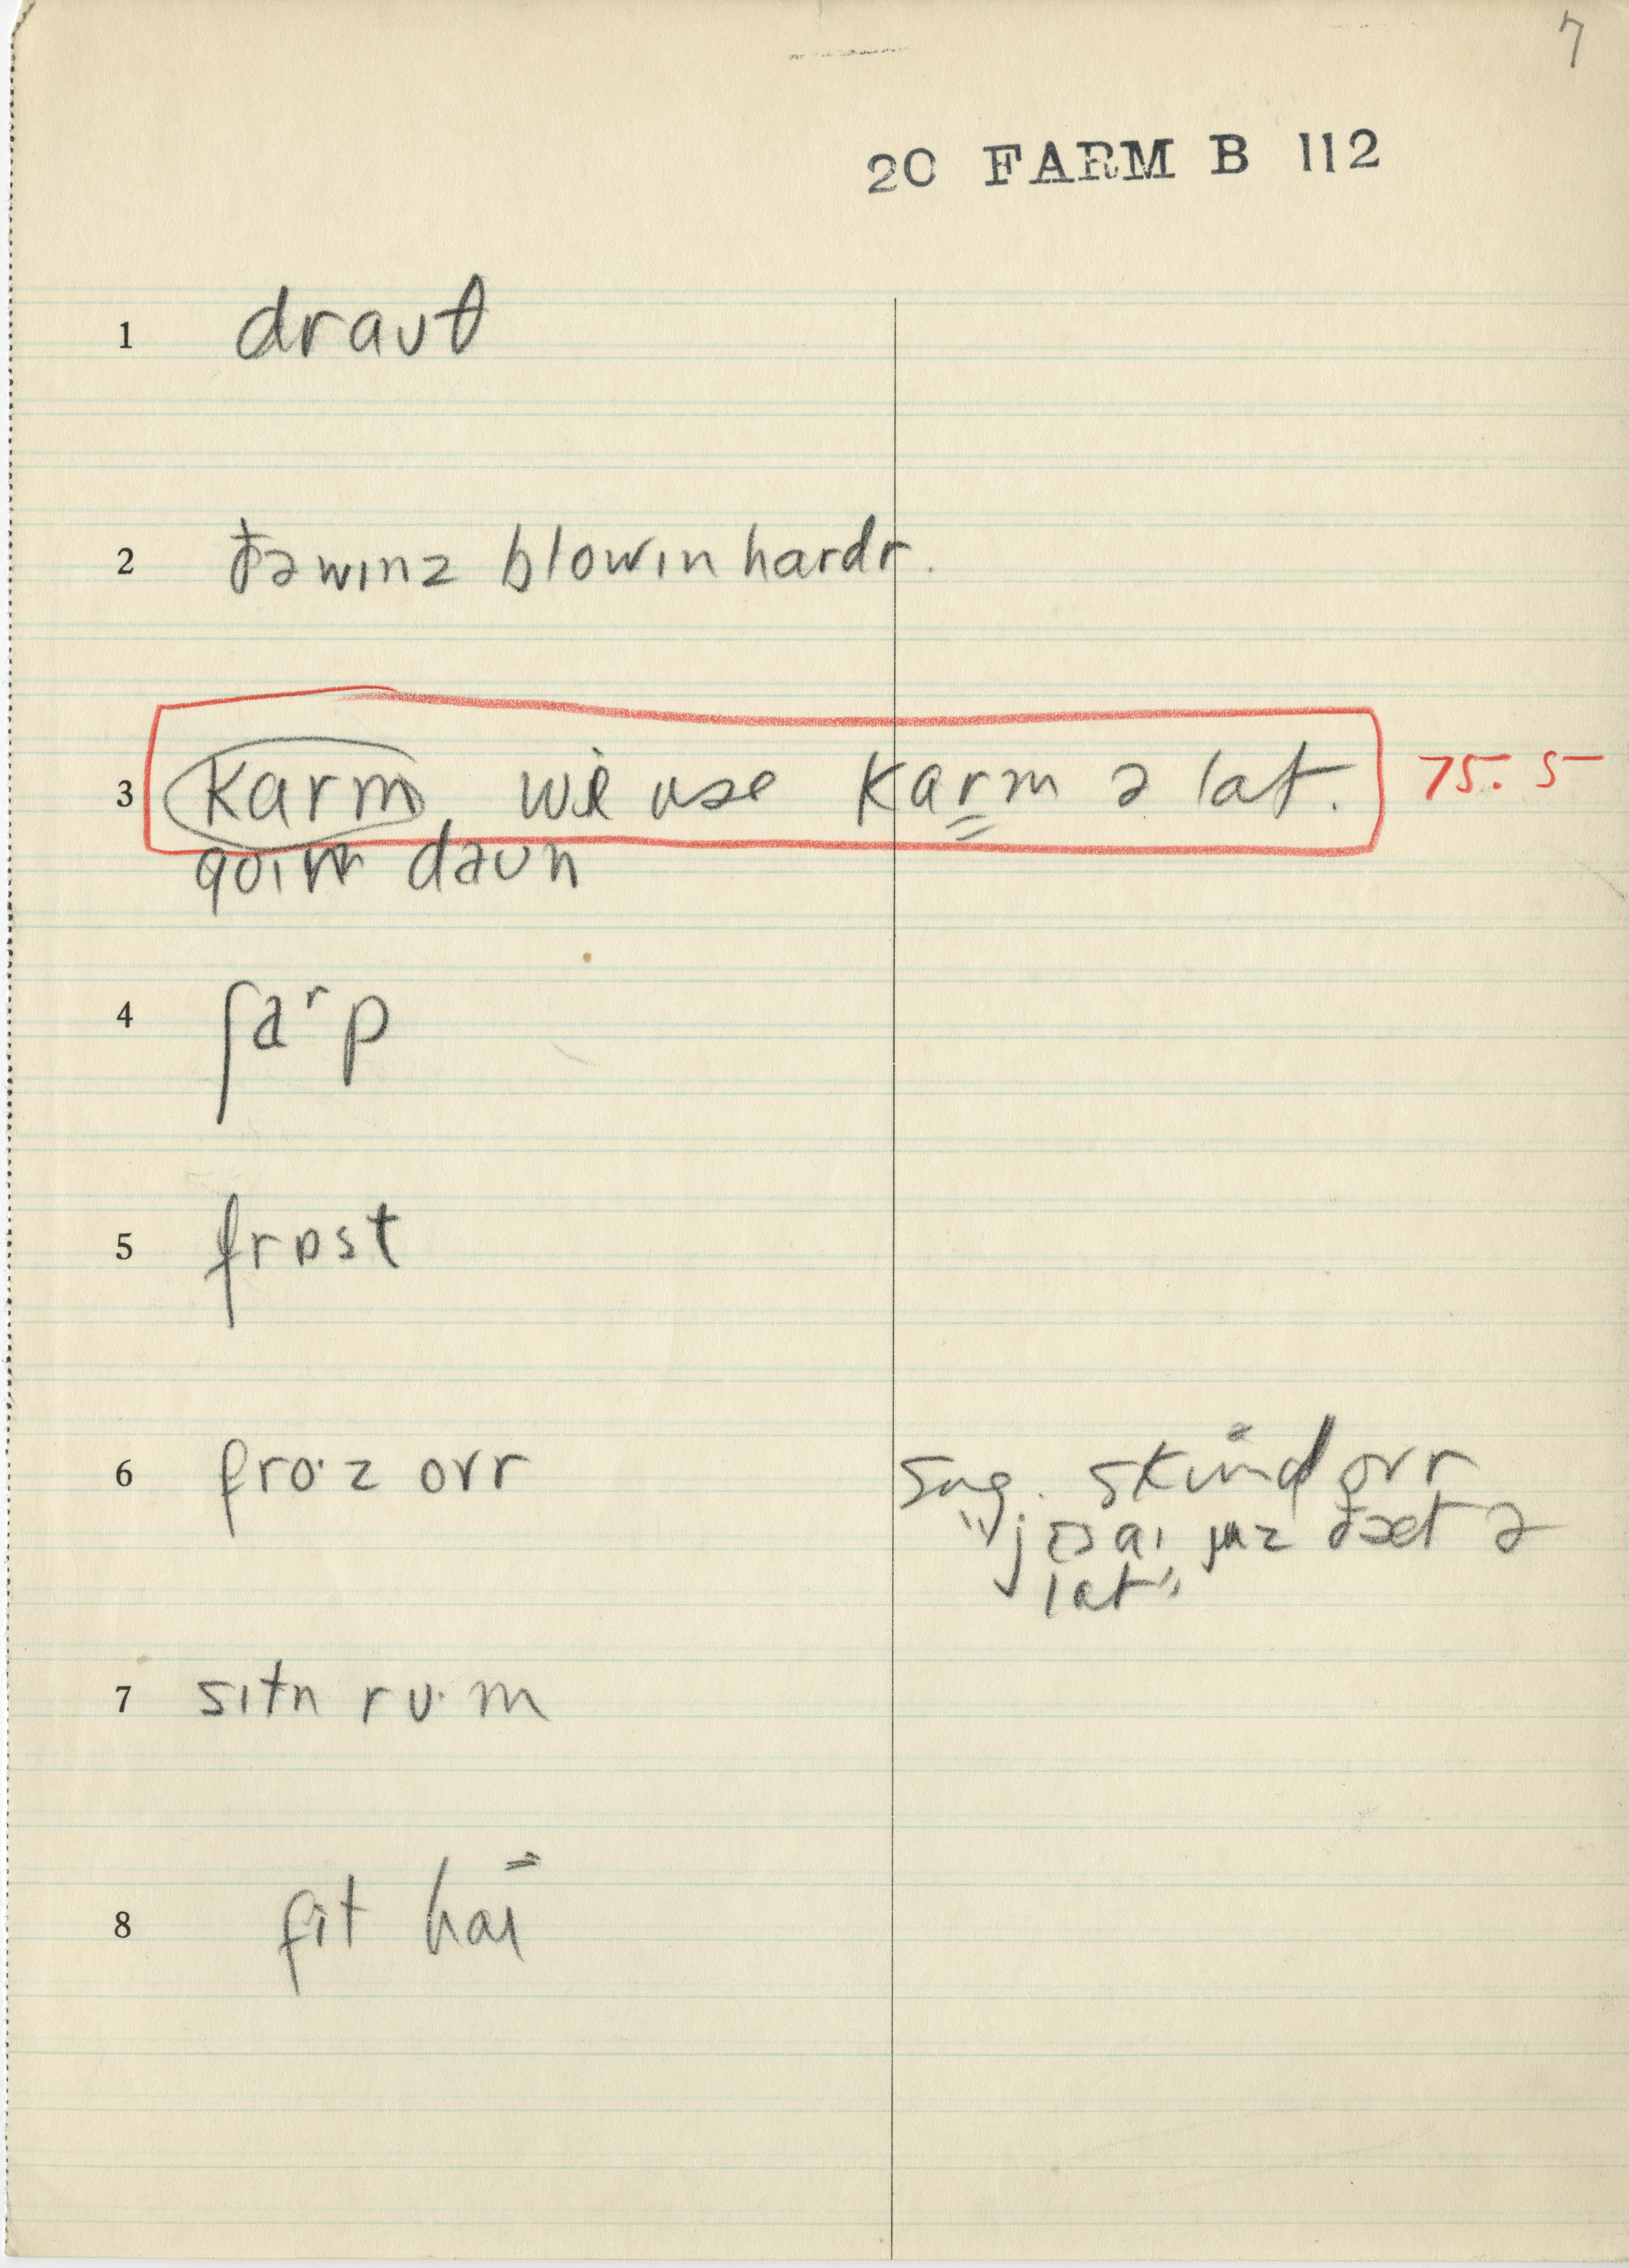 7
20 FARM B 112
1 drauθ
2 ðə wɪnz blowɪn hardr.
3 Karm, wi use Karm ə lat. 75.5
goɪn daun
4 ʃaʳp
5 frɒst
6 fro·z ovr sug. skɪmd ovr
"jɛs aɪ juz ðæt ə
lat"
7 sɪtn ru·m
8 fit haɪ